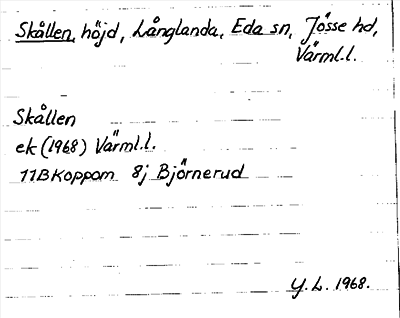 Skållen, höjd, Långlanda, Eda sn, Jösse hd,
Värml.l.
Skållen
ek (1968) Värml.l.
11B Koppom 8j Björnerud
Y. L. 1968.